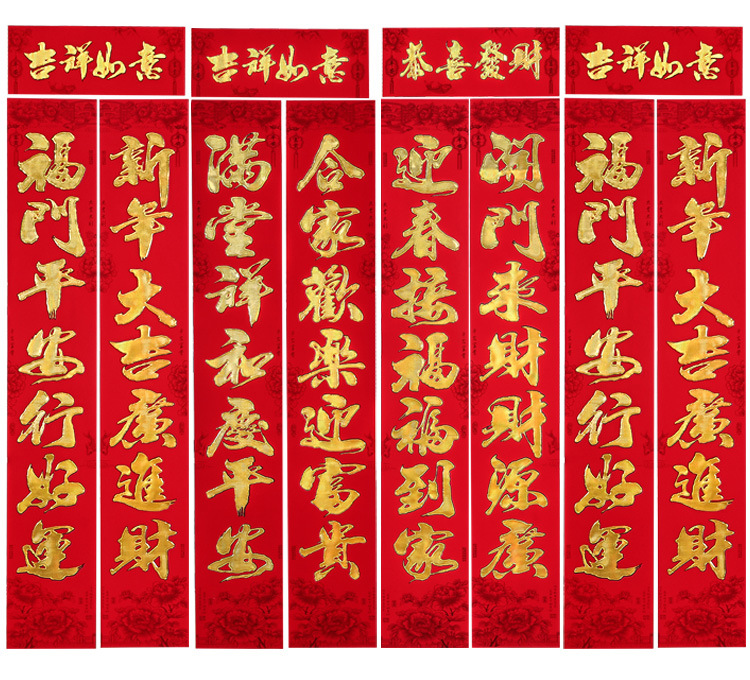 吉祥如意
吉祥如意
恭喜發財
吉祥如意
福門平安行好運
新年大吉廣進財
滿堂祥和慶平安
合家歡樂迎富貴
迎春接福福到家
開門来財財源廣
福門平安行好運
新年大吉廣進財